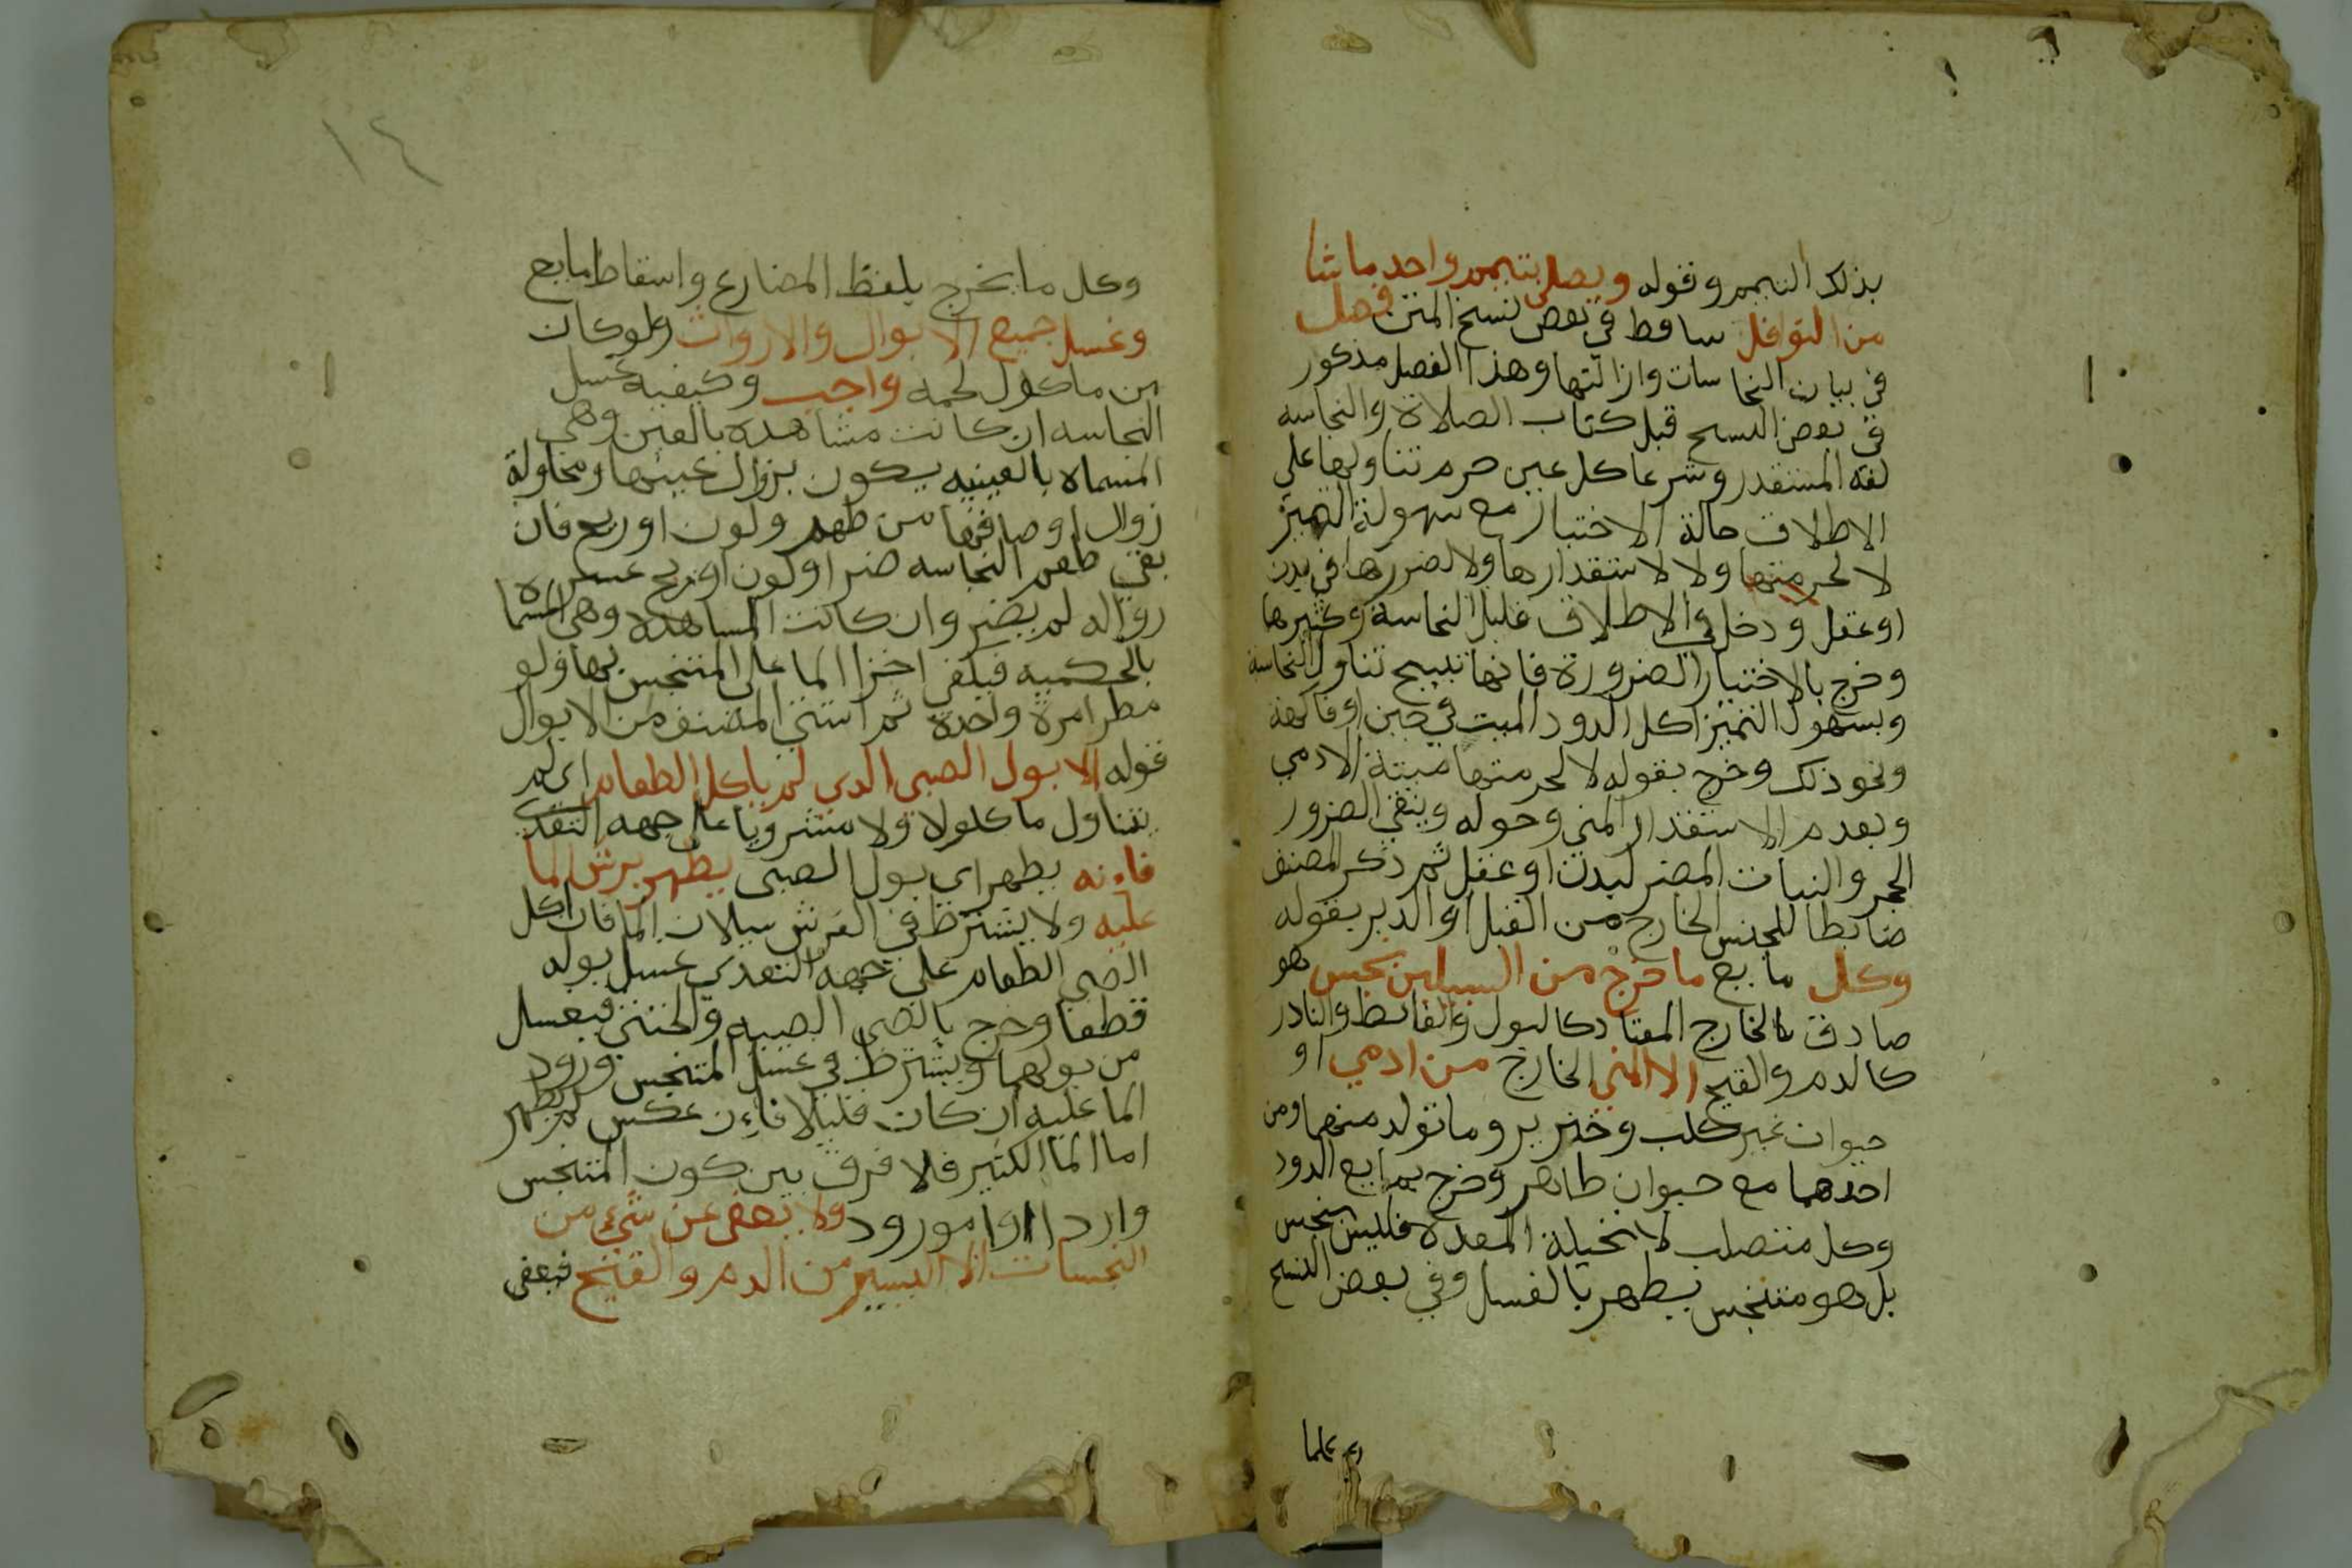 بذلك التيمم وقوله ويصلى بتيمم واحد ما شا
من النوافل ساقط في بعض نسخ المتن فصل
في بيان النجاسات وازالتها وهذا الفصل مذكور
في بعض النسخ قبل كتاب الصلاة والنجاسه
لغه المستقدر وشرعا كل عين حرم تناولها على
الاطلاق حالة الاختيار مع سهولة التميز
لا لحرمتها ولا لاستقدارها ولا لضررها في بدن
او عقل ودخل في الاطلاق قليل النجاسة وكثيرها
وخرج بالاختيار الضرورة فانها تبيح تناول النجاسة
وبسهولة التميز اكل الدود الميت في جبن او فاكهة
ونحو ذلك وخرج بقوله لا لحرمتها ميتة الادمي
وبعدم الاستقدار المني ونحوه وبنفي الضرر
الحجر والنبات المضر لبدن او عقل ثم ذكر المصنف
ضابطا للنجس الخارج من القبل او الدبر بقوله
وكل مايع ما خرج من السبيلين نجس هو
صادق بالخارج المعتاد كالبول والغائط والنادر
كالدم والقيح الا المني الخارج من ادمي او
حيوان غير كلب وخنزير وما تولد منهما ومن
احدهما مع حيوان طاهر وخرج بمايع الدود
وكل متصلب لا تحيله المعدة فليس بنجس
بل هو متنجس يطهر بالغسل وفي بعض النسخ
١٤
وكل ما يخرج بلفظ المضارع واسقاط مايع
وغسل جميع الابوال والارواث ولو كان
من ماكول لحمه واجب وكيفية غسل
النجاسه ان كانت مشاهده بالعين وهي
المسماه بالعينيه يكون بزوال عينها ومحاولة
زوال اوصافها من طعم ولون او ريح فان
بقي طعم النجاسه ضر او لون او ريح عسر
زواله لم يضر وان كانت المساهده وهي المسماه
بالحكميه فيكفي اجرا الما على المتنجس بها ولو
مطرا مرة واحدة ثم استثنى المصنف من الابوال
قوله الا بول الصبى الدى لم ياكل الطعام اي لم
يتناول ماكولا ولا مشروبا على جهه التغدي
فاءنه يطهر اى بول الصبى يطهر برش الما
عليه ولا يشترط في الرش سيلان الما فان اكل
الصبى الطعام على جهه التغدى غسل بوله
قطعا وخرج بالصبى الصبيه والخنثى فيغسل
من بولهما ويشترط في غسل المتنجس ورود
الما عليه ان كان قليلا فاءن عكس لم يطهر
اما الما الكثير فلا فرق بين كون المتنجس
واردا او مورود ولا يعفى عن شيء من
النجسات الا اليسير من الدم والقيح فيعفى